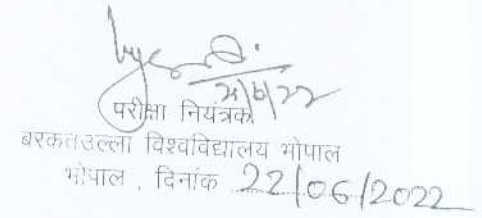 परीक्षा नियंत्रक
बरकतउल्ला विश्वविद्यालय भोपाल
भोपाल , दिनांक 22/06/2022